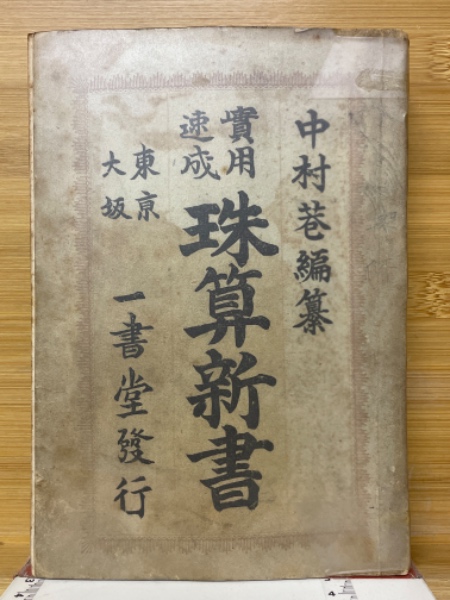 中村巷編纂
實用
速成
珠算新書
東京
大坂
一書堂發行